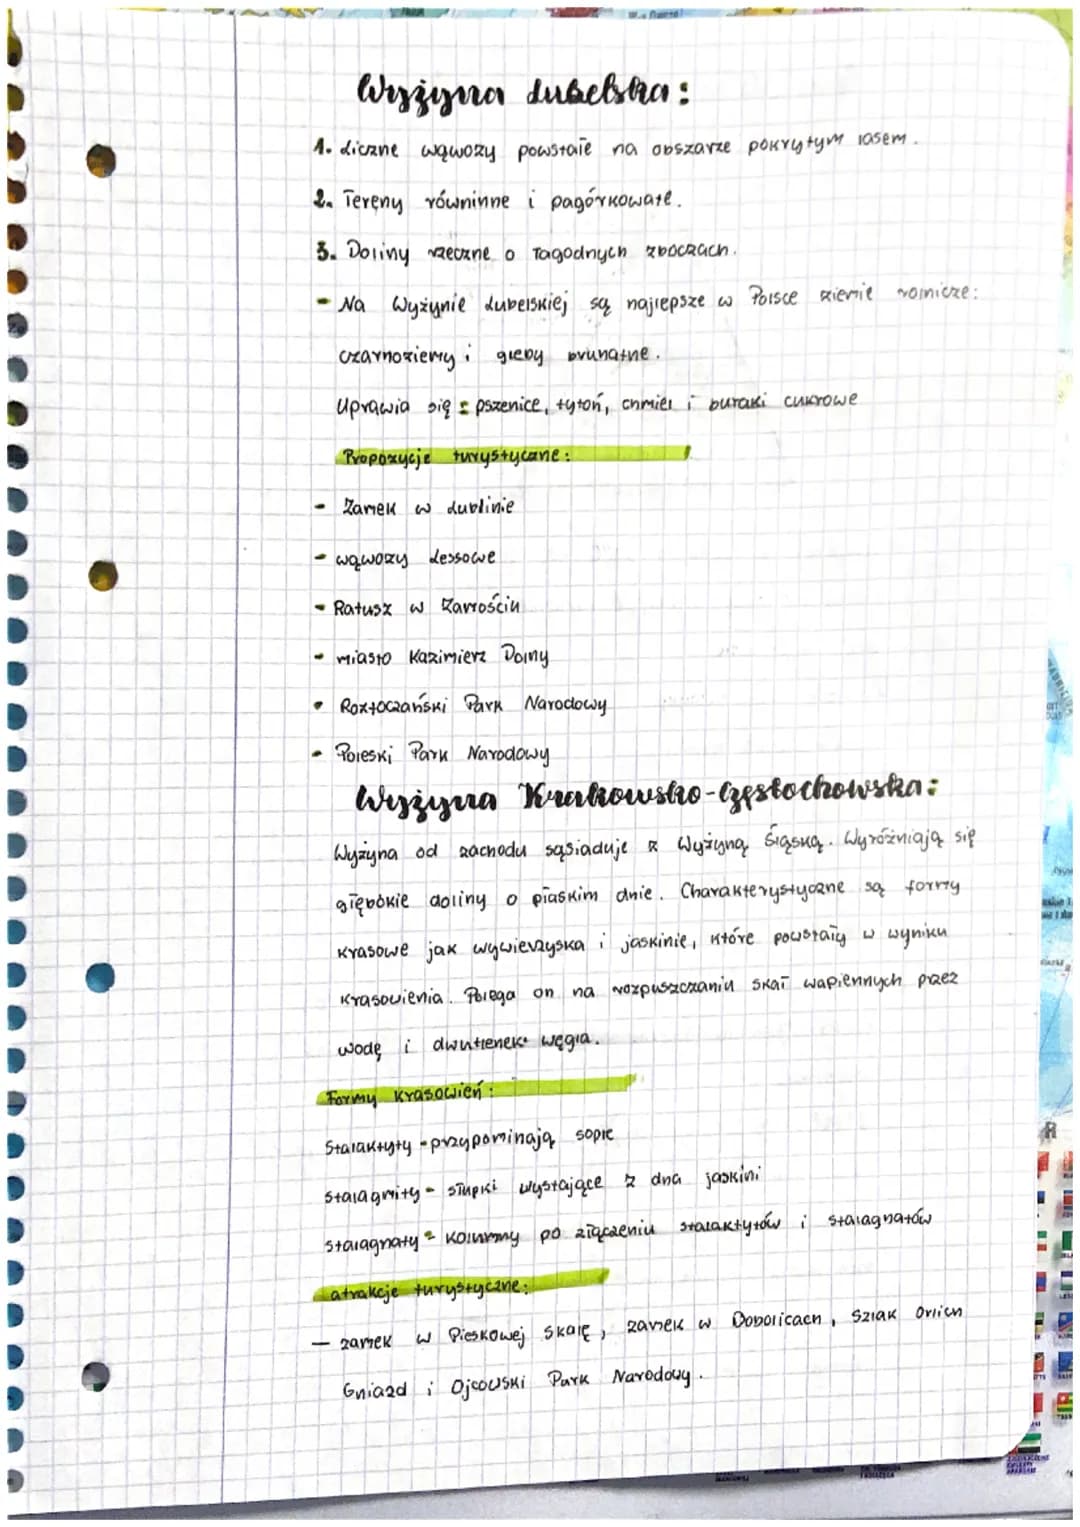 Wyżyna Lubelska:
1. Liczne wąwozy powstałe na obszarze pokrytym lasem.
2. Tereny równinne i pagórkowate.
3. Doliny rzeczne o łagodnych zboczach.
- Na Wyżynie Lubelskiej są najlepsze w Polsce ziemie rolnicze:
czarnoziemy i gleby brunatne.
Uprawia się: pszenice, tytoń, chmiel i buraki cukrowe
Propozycje turystyczne:
- Zamek w Lublinie
- wąwozy Lessowe
- Ratusz w Zamościu
- miasto Kazimierz Dolny
- Roztoczański Park Narodowy
- Poleski Park Narodowy
Wyżyna Krakowsko-Częstochowska:
Wyżyna od zachodu sąsiaduje z Wyżyną Śląską. Wyróżniają się
głębokie doliny o płaskim dnie. Charakterystyczne są formy
krasowe jak wywierzyska i jaskinie, które powstały w wyniku
krasowienia. Polega on na rozpuszczaniu skał wapiennych przez
wodę i dwutlenek węgla.
Formy krasowień:
Stalaktyty - przypominają sople
stalagmity - słupki wystające z dna jaskini
stalagnaty - kolumny po złączeniu stalaktytów i stalagnatów
atrakcje turystyczne:
— zamek w Pieskowej Skałe, zamek w Dobolicach, szlak Orlich
Gniazd i Ojcowski Park Narodowy.